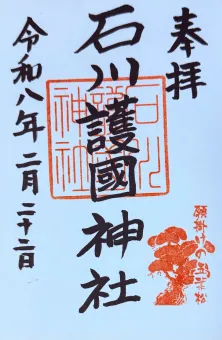 奉拝
石川護國神社
令和八年二月二十二日
石川護国神社
願掛けの